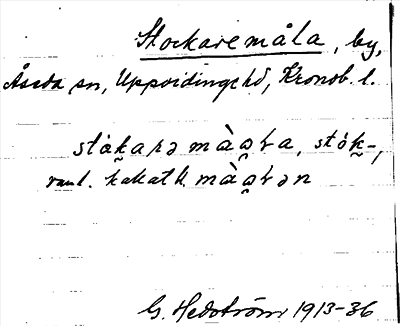 Stockaremåla, by,
Åseda sn, Uppvidinge hd, Kronob. l.
stȧk̬arə màa̯ɫa, stȯk̬-,
vanl. kakatk màa̯ɫən
G. Hedström 1913-36